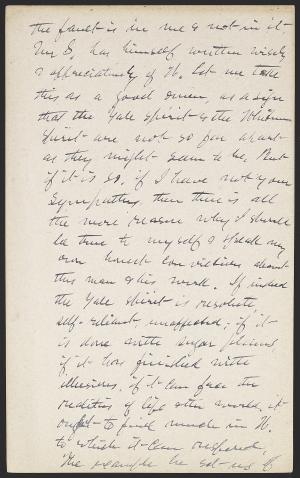 the fault is in me & not in it.
Mr B. has himself written wisely
& appreciatively of W. Let me take
this as a good omen, as a sign
that the Yale spirit & the Whitman
spirit are not so far apart
as they might seem to be. But
if it is so, if I have not your
sympathies, then there is all
the more reason why I should
be true to myself & speak my
own honest convictions about
this man & his work. If indeed
the Yale spirit is resolute,
self-reliant, unaffected; if it
is done with sugar plums,
if it has finished with
illusions, if it can face the
realities of life & the world, it
ought to find much in W.
to which it can respond.
The example he set us of